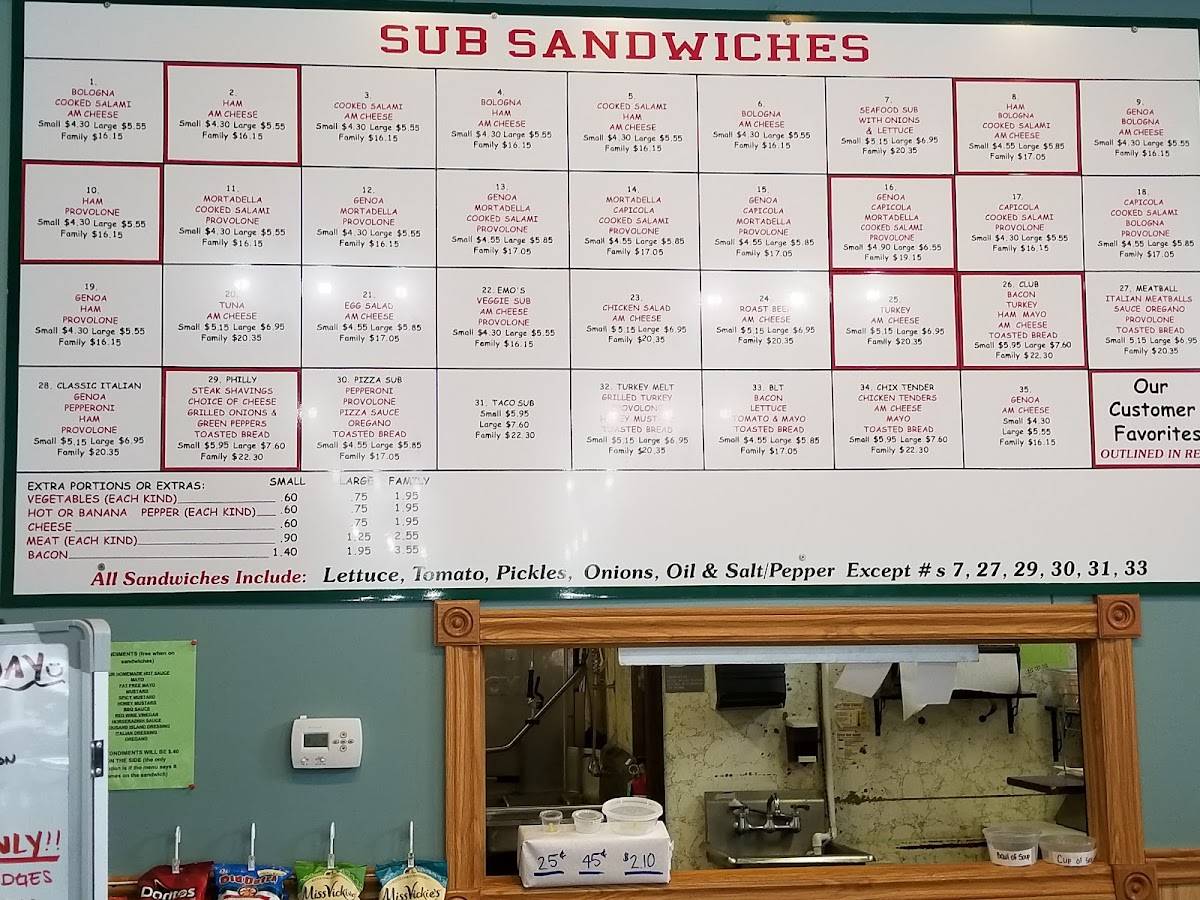 SUB SANDWICHES
1.
BOLOGNA
COOKED SALAMI
AM CHEESE
Small $4.30 Large $5.55
Family $16.15
2.
HAM
AM CHEESE
Small $4.30 Large $5.55
Family $16.15
3.
COOKED SALAMI
AM CHEESE
Small $4.30 Large $5.55
Family $16.15
4.
BOLOGNA
HAM
AM CHEESE
Small $4.30 Large $5.55
Family $16.15
5.
COOKED SALAMI
HAM
AM CHEESE
Small $4.30 Large $5.55
Family $16.15
6.
BOLOGNA
AM CHEESE
Small $4.30 Large $5.55
Family $16.15
7.
SEAFOOD SUB
WITH ONIONS
& LETTUCE
Small $5.15 Large $6.95
Family $20.35
8.
HAM
BOLOGNA
COOKED SALAMI
AM CHEESE
Small $4.55 Large $5.85
Family $17.05
9.
GENOA
BOLOGNA
AM CHEESE
Small $4.30 Large $5.55
Family $16.15
10.
HAM
PROVOLONE
Small $4.30 Large $5.55
Family $16.15
11.
MORTADELLA
COOKED SALAMI
PROVOLONE
Small $4.30 Large $5.55
Family $16.15
12.
GENOA
MORTADELLA
PROVOLONE
Small $4.30 Large $5.55
Family $16.15
13.
GENOA
MORTADELLA
COOKED SALAMI
PROVOLONE
Small $4.55 Large $5.85
Family $17.05
14.
MORTADELLA
CAPICOLA
COOKED SALAMI
PROVOLONE
Small $4.55 Large $5.85
Family $17.05
15.
GENOA
CAPICOLA
MORTADELLA
PROVOLONE
Small $4.55 Large $5.85
Family $17.05
16.
GENOA
CAPICOLA
MORTADELLA
COOKED SALAMI
PROVOLONE
Small $4.90 Large $6.55
Family $19.15
17.
CAPICOLA
COOKED SALAMI
PROVOLONE
Small $4.30 Large $5.55
Family $16.15
18.
CAPICOLA
COOKED SALAMI
BOLOGNA
PROVOLONE
Small $4.55 Large $5.85
Family $17.05
19.
GENOA
HAM
PROVOLONE
Small $4.30 Large $5.55
Family $16.15
20.
TUNA
AM CHEESE
Small $5.15 Large $6.95
Family $20.35
21.
EGG SALAD
AM CHEESE
Small $4.55 Large $5.85
Family $17.05
22. EMO'S
VEGGIE SUB
AM CHEESE
PROVOLONE
Small $4.30 Large $5.55
Family $16.15
23.
CHICKEN SALAD
AM CHEESE
Small $5.15 Large $6.95
Family $20.35
24.
ROAST BEEF
AM CHEESE
Small $5.15 Large $6.95
Family $20.35
25.
TURKEY
AM CHEESE
Small $5.15 Large $6.95
Family $20.35
26. CLUB
BACON
TURKEY
HAM MAYO
AM CHEESE
TOASTED BREAD
Small $5.95 Large $7.60
Family $22.30
27. MEATBALL
ITALIAN MEATBALLS
SAUCE OREGANO
PROVOLONE
TOASTED BREAD
Small 5.15 Large $6.95
Family $20.35
28. CLASSIC ITALIAN
GENOA
PEPPERONI
HAM
PROVOLONE
Small $5.15 Large $6.95
Family $20.35
29. PHILLY
STEAK SHAVINGS
CHOICE OF CHEESE
GRILLED ONIONS &
GREEN PEPPERS
TOASTED BREAD
Small $5.95 Large $7.60
Family $22.30
30. PIZZA SUB
PEPPERONI
PROVOLONE
PIZZA SAUCE
OREGANO
TOASTED BREAD
Small $4.55 Large $5.85
Family $17.05
31. TACO SUB
Small $5.95
Large $7.60
Family $22.30
32. TURKEY MELT
GRILLED TURKEY
PROVOLONE
HONEY MUSTARD
TOASTED BREAD
Small $5.15 Large $6.95
Family $20.35
33. BLT
BACON
LETTUCE
TOMATO & MAYO
TOASTED BREAD
Small $4.55 Large $5.85
Family $17.05
34. CHIX TENDER
CHICKEN TENDERS
AM CHEESE
MAYO
TOASTED BREAD
Small $5.95 Large $7.60
Family $22.30
35.
GENOA
AM CHEESE
Small $4.30
Large $5.55
Family $16.15
Our
Customer
Favorites
OUTLINED IN RE
EXTRA PORTIONS OR EXTRAS: SMALL LARGE FAMILY
VEGETABLES (EACH KIND) .60 .75 1.95
HOT OR BANANA PEPPER (EACH KIND) .60 .75 1.95
CHEESE .60 .75 1.95
MEAT (EACH KIND) .90 1.25 2.55
BACON 1.40 1.95 3.55
All Sandwiches Include: Lettuce, Tomato, Pickles, Onions, Oil & Salt/Pepper Except # s 7, 27, 29, 30, 31, 33
DIMENTS (free when on
sandwiches)
UR HOMEMADE HOT SAUCE
MAYO
FAT FREE MAYO
MUSTARD
SPICY MUSTARD
HONEY MUSTARD
BBQ SAUCE
RED WINE VINEGAR
HORSERADISH SAUCE
OUSAND ISLAND DRESSING
ITALIAN DRESSING
OREGANO
ONDIMENTS WILL BE $.40
ON THE SIDE (the only
is if the menu says it
comes on the sandwich)
AY
ON
NLY!!
DGES
25¢ 45¢ $2.10
Bowl of Soup
Cup of Sou
Doritos
Old Dutch
Miss Vickie
Miss Vickie's